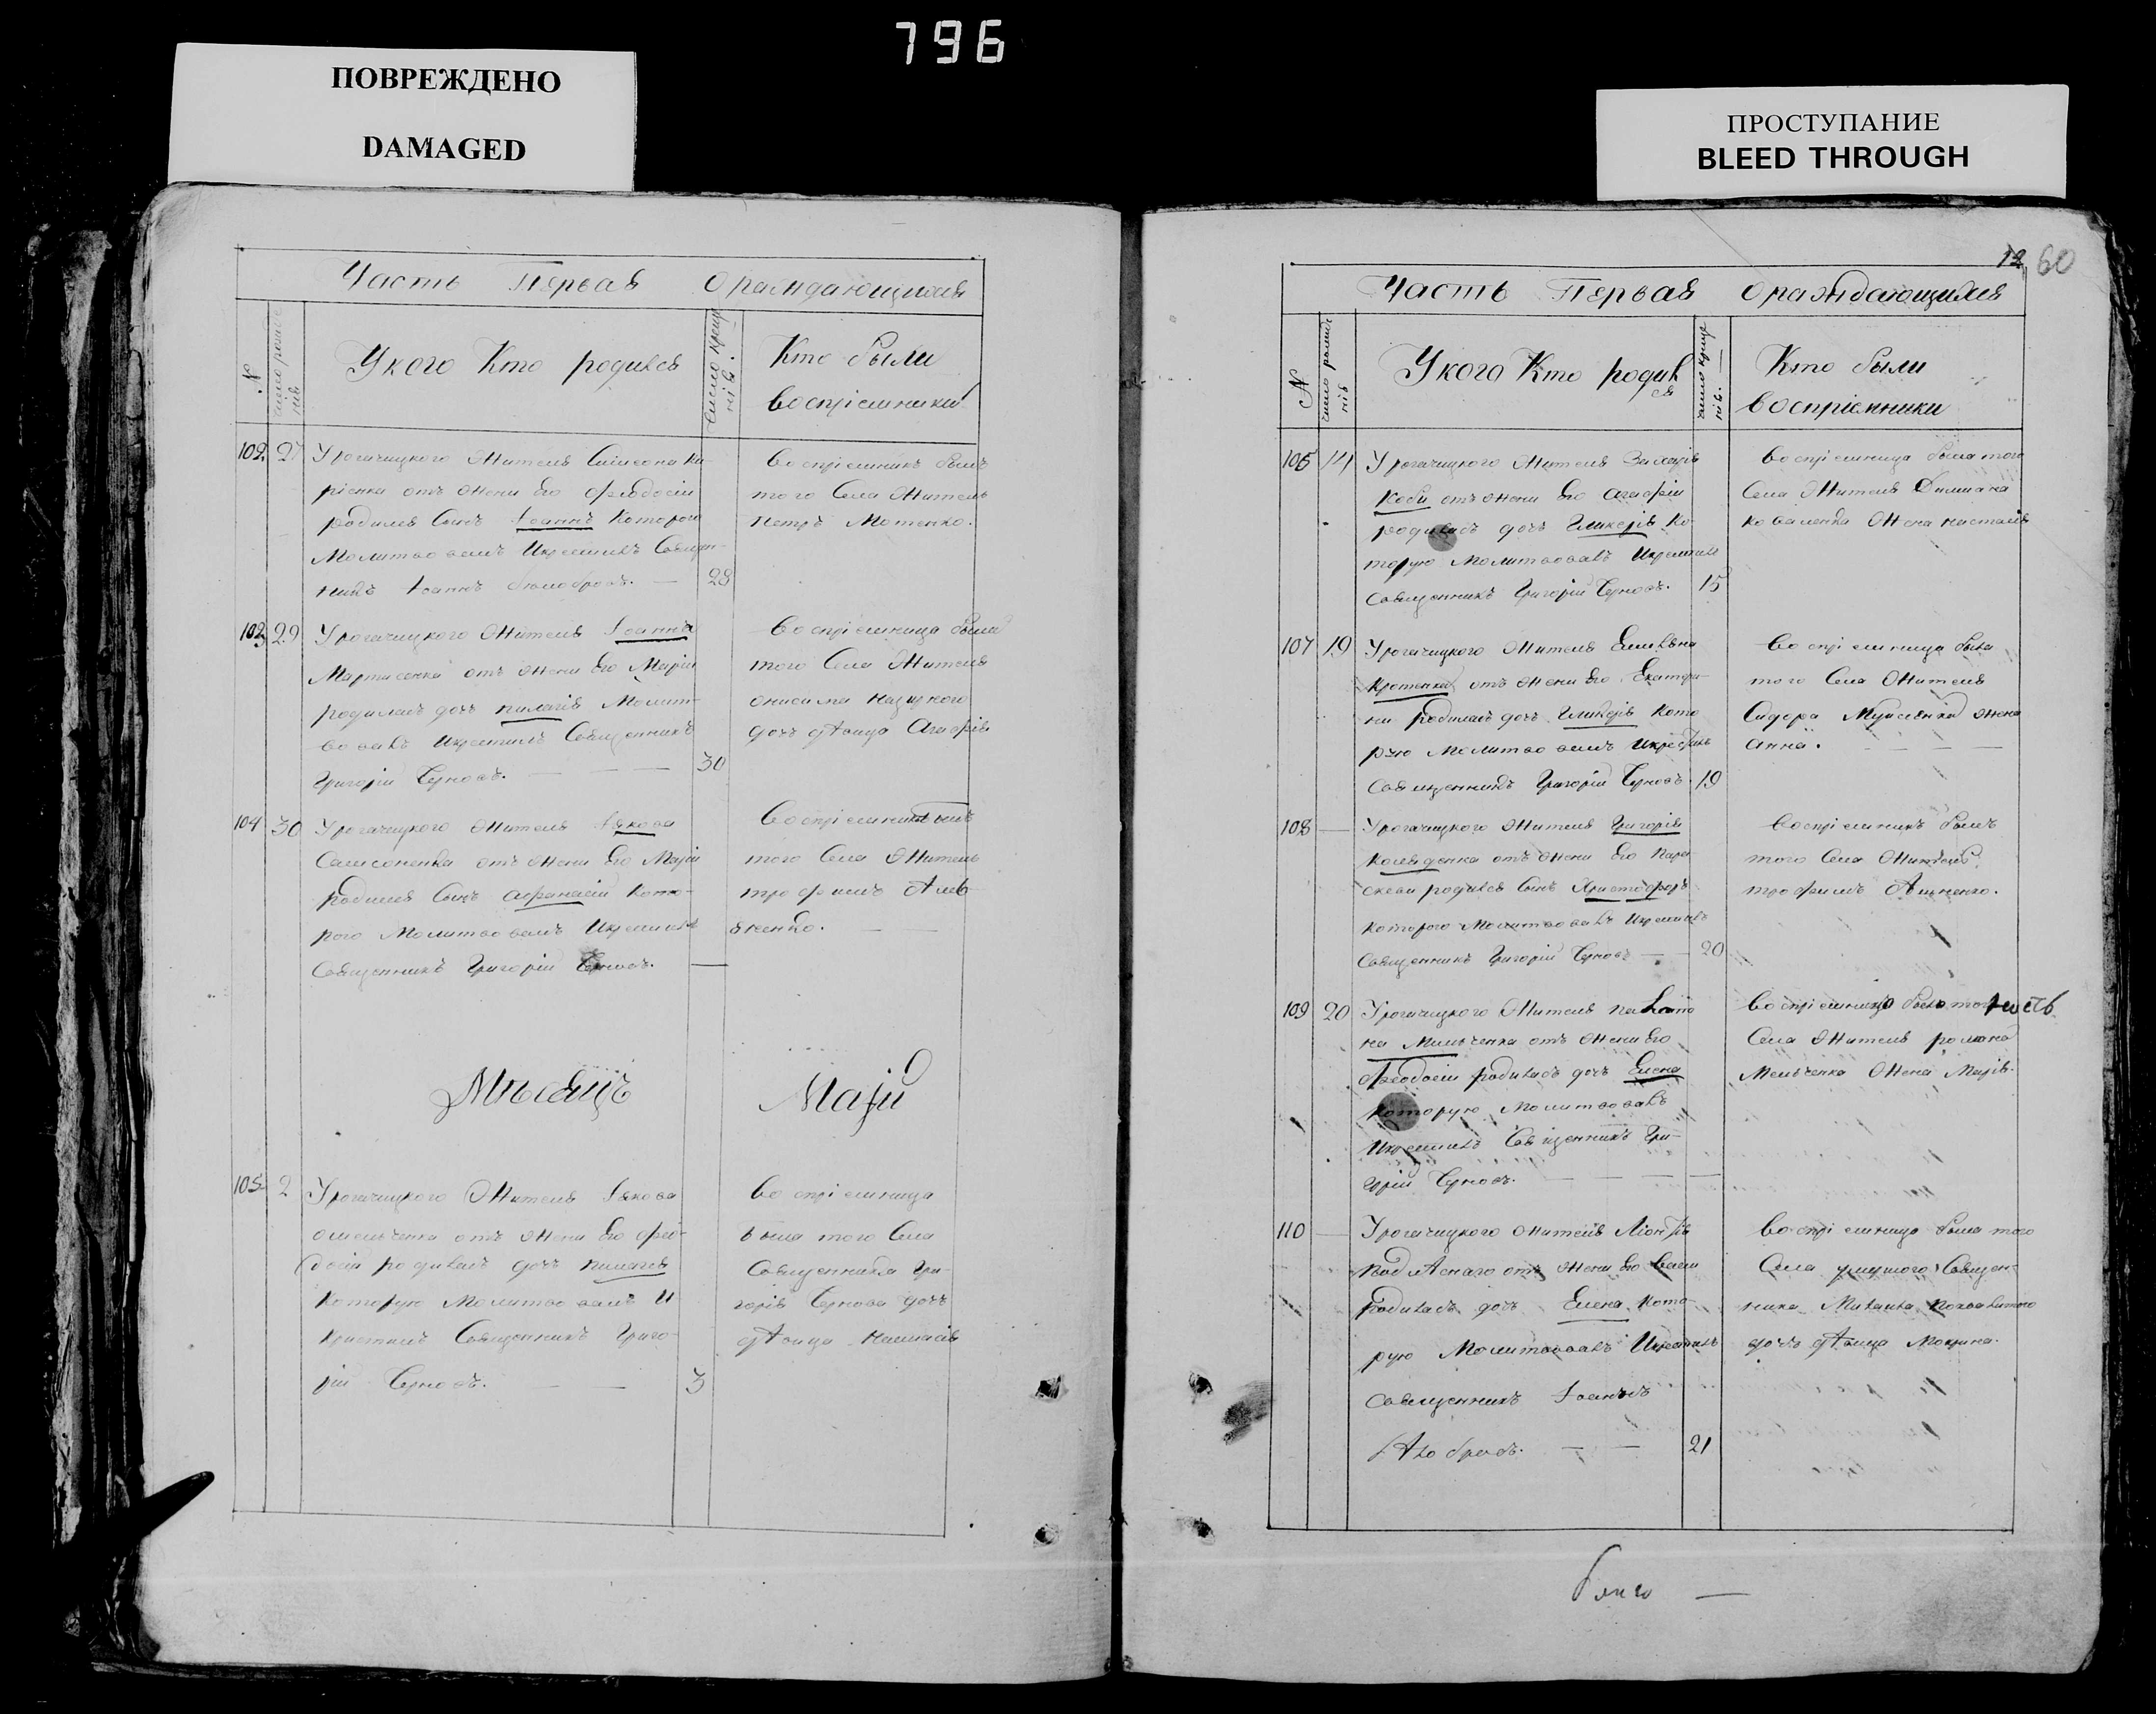 796
ПОВРЕЖДЕНО
DAMAGED
ПРОСТУПАНИЕ
BLEED THROUGH
Часть Первая О раждающихся
N
число рожде
нів
У кого Кто родився
число крще
нів.
Кто были
воспріемники
102 27 У рогачицкого Жителя Симеона Ки
ріенка отъ жени Его Феодосіи
родился Сынъ Іоаннъ Которого
Молитвовалъ Икрестилъ Священ-
никъ Іоаннъ Белобровъ. — 28
Воспріемникъ былъ
того Села Житель
Петръ Мотенко.
103 29 У рогачицкого Жителя Іоанна
Мартисенка отъ жени Его Маріи
родилась дочь пилагія Молит-
вовалъ Икрестилъ Священникъ
Григорій Черновъ. — — — 30
Воспріемница была
того Села Жителя
онисима
дочь дѣвица Агафія
104 30 У рогачицкого Жителя Іякова
Самсоненка отъ жени Его Маріи
родился Сынъ афанасій Кото-
рого Молитвовалъ Икрестилъ
Священникъ Григорій Черновъ. —
Воспріемникъ былъ
того Села Житель
трофимъ
Мѣсяцъ Маій
105 2 У рогачицкого Жителя Іякова
омельченка отъ жени Его фео-
досіи родилась дочь пилагея
Которую Молитвовалъ И
крестилъ Священникъ Григо-
рій Черновъ. — — 3
Воспріемница
была того Села
Священника Гри-
горія Чернова дочь
дѣвица
12 60
Часть Первая О раждающихся
N
число рожде
нів
У кого Кто родив
ся
число крще
нів. —
Кто были
воспріемники
106 14 У рогачицкого Жителя Захарія
Коби отъ жени Его агафіи
родилась дочь Гликерія Ко-
торую Молитвовалъ Икрестилъ
Священникъ Григорій Черновъ. 15
Воспріемница была того
Села Жителя Димиана
коваленка Жена настасія
107 19 У рогачицкого Жителя Емилѣна
Кротенка отъ жени Его Екатери-
ни родилась дочь Гликерія Кото
рую Молитвовалъ Икрестилъ
Священникъ Григорій Черновъ. 19
Воспріемница была
того Села Жителя
Сидора жена
анна. — — —
108 — У рогачицкого Жителя Григорія
отъ жени Его Пара-
скеви родился Сынъ Христофоръ
Которого Молитвовалъ Икрестилъ
Священникъ Григорій Черновъ — — 20
Воспріемникъ былъ
того Села Житель
трофимъ
109 20 У рогачицкого Жителя
на Мильченка отъ жени Его
Феодосіи родилась дочь Елена
которую Молитвовалъ
Икрестилъ Священникъ Гри-
горій Черновъ. — — — —
Воспріемница была того
Села Жителя романа
Мельченка Жена Марія.
110 — У рогачицкого Жителя Ліонтія
отъ жени Его
родилась дочь Елена Кото-
рую Молитвовалъ Икрестилъ
Священникъ Іоаннъ
Бѣлобровъ. — — 21
Воспріемница была того
Села Священ-
ника Михаила
дочь дѣвица Мокрина.